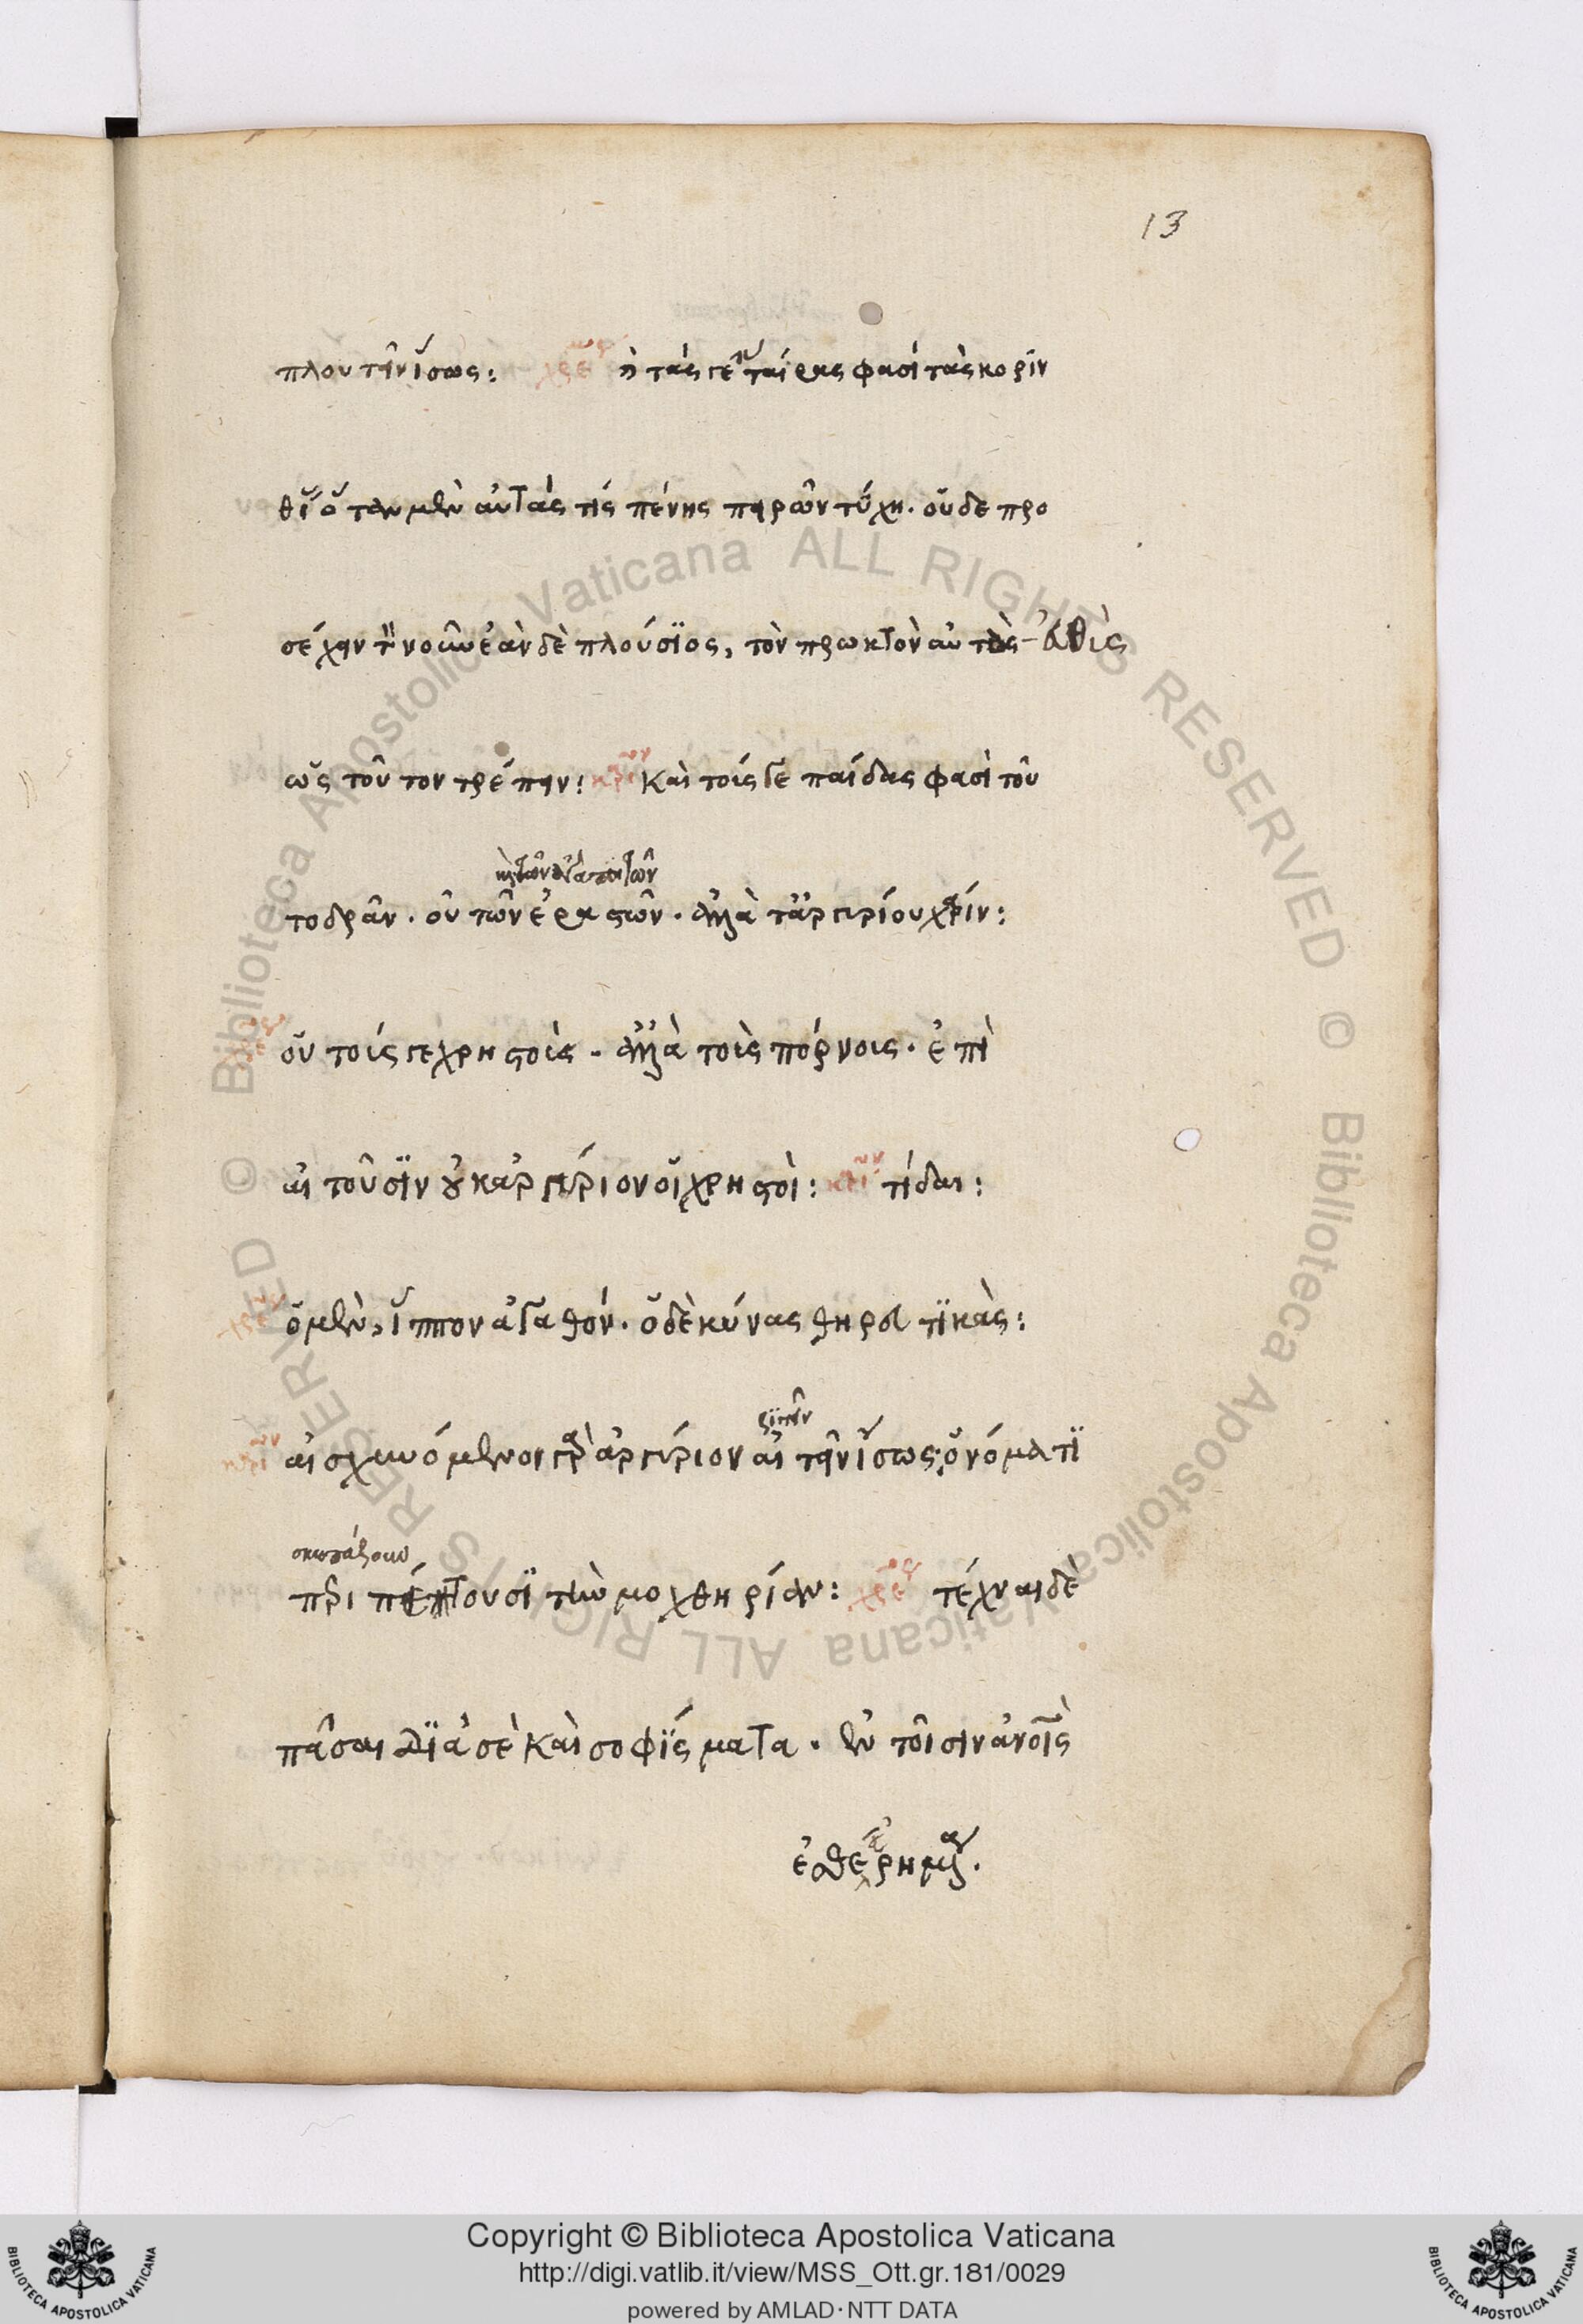 13
πλουτεῖν ἴσως: χρε κ τάς γ' ἑταίρας φασὶ τὰς κοριν
θί ὅταν μὲν αὐτάς τίς πένης πειρῶν τύχη. οὐδε προ
σέχειν τὸν νοῦν ἐὰν δὲ πλούσϊος, τὸν πρωκτὸν αὐτὰς
ὡς τοῦτον τρέπειν: Καὶ τούς γε παίδας φασὶ τοῦ
τοδρᾶν. οὐ τῶν ἐραστῶν. ἀλλὰ τἀργυρίου χάριν:
οὐ τούς γε χρηστοὺς. ἀλλὰ τοὺς πόρνους. ἐπὶ
αἰτοῦσϊν οὐκ ἀργύριον οἱ χρηστοὶ: τί δαι:
ὁ μὲν, ἵππον ἀγαθόν. ὁ δὲ κύνας θηρατϊκὰς:
ζητεῖν
αἰσχυνόμενοι γὰρ ἀργύριον αἰτεῖν ἴσως, ὀνόματϊ
περιπέττουσϊ τὴν μοχθηρίαν: χρε τέχναι δὲ
πᾶσαι δϊὰ σὲ καὶ σοφΐσματα. ἐν τοῖσιν ἀνοις
Copyright © Biblioteca Apostolica Vaticana
http://digi.vatlib.it/view/MSS_Ott.gr.181/0029
powered by AMLAD · NTT DATA
BIBLIOTECA APOSTOLICA VATICANA
BIBLIOTECA APOSTOLICA VATICANA
© Biblioteca Apostolica Vaticana ALL RIGHTS RESERVED © Biblioteca Apostolica Vaticana ALL RIGHTS RESERVED